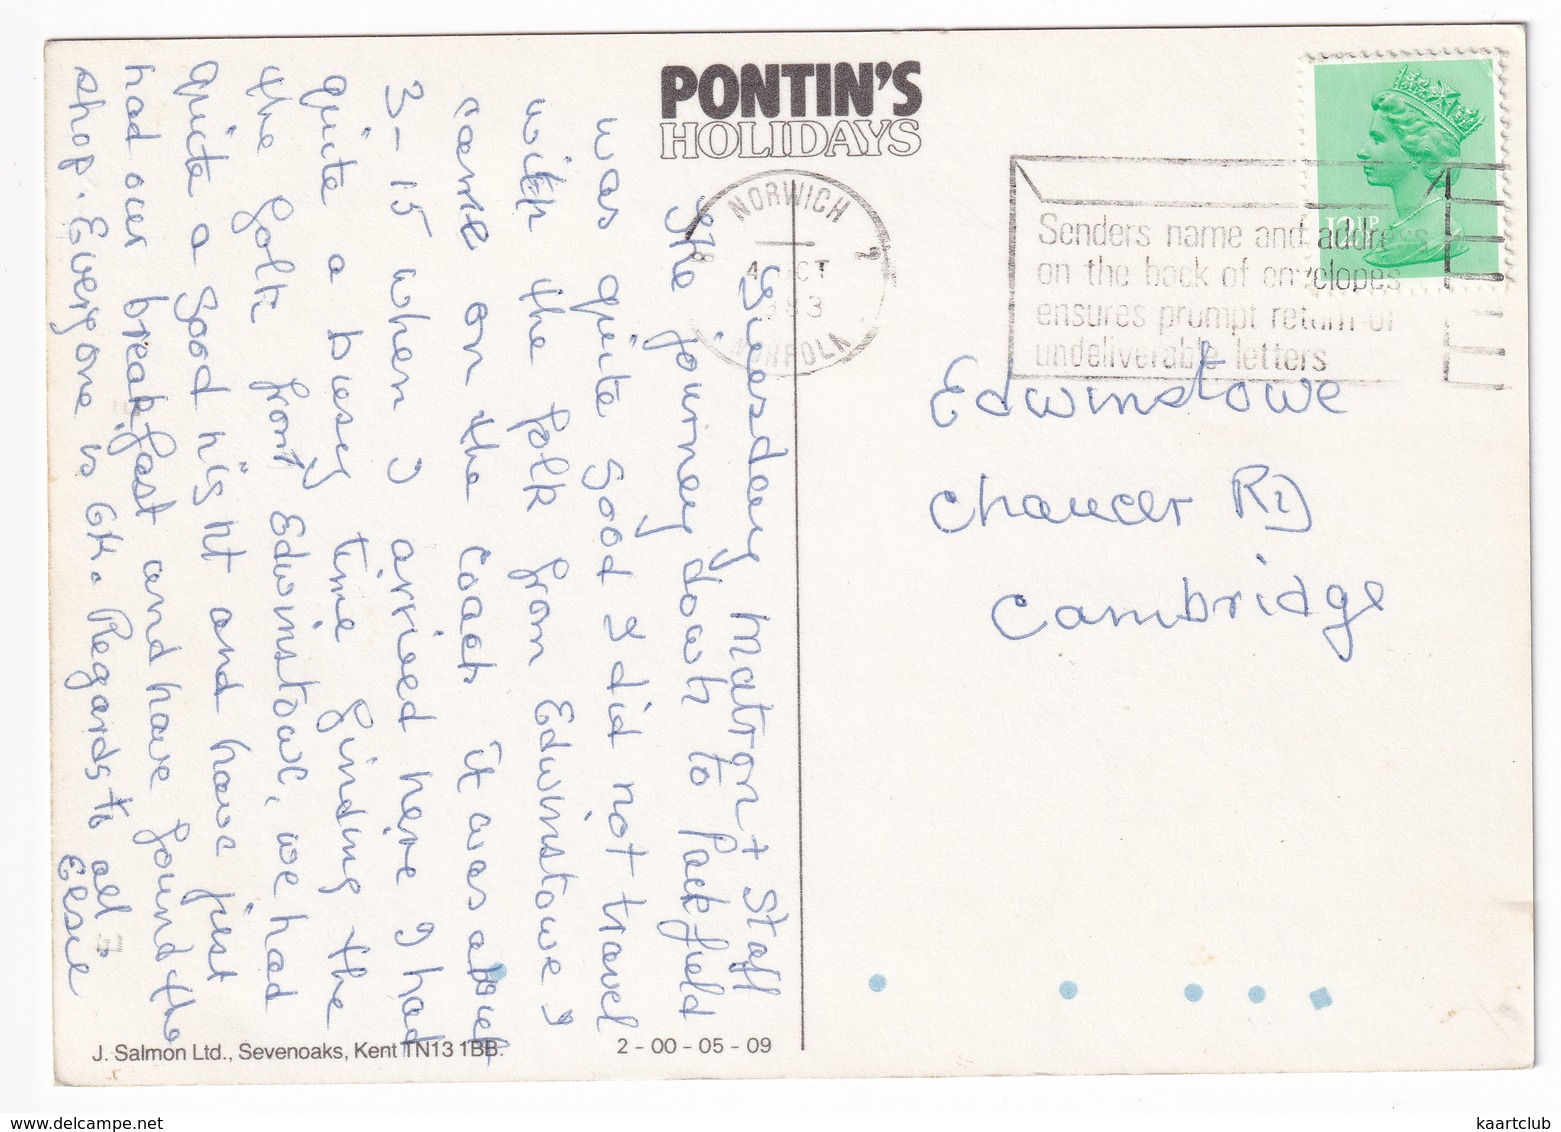 PONTIN'S
HOLIDAYS
NORWICH
NORFOLK
Senders name and address
on the back of envelopes
ensures prompt return of
undeliverable letters
12½P
Tuesday Matron + Staff
The journey down to Packfield
was quite good I did not travel
with the folk from Edwinstowe I
came on the coach it was about
3-15 when I arrived here I had
quite a busy time finding the
the folk from Edwinstowe, we had
quite a good night and have just
had our breakfast and have found the
shop. Everyone is OK. Regards to all
Elsie
Edwinstowe
Chaucer RD
Cambridge
J. Salmon Ltd., Sevenoaks, Kent TN13 1BB.
2-00-05-09
www.delcampe.net
kaartclub